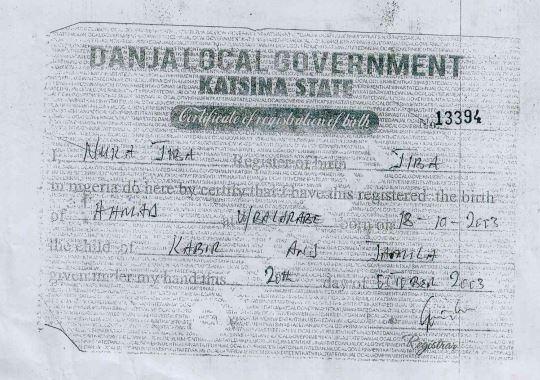 DANJA LOCAL GOVERNMENT
KATSINA STATE
Certificate of registration of birth
No. 13394
I, NURA JIBA Register of birth JIBA
in nigeria do here by certify that I have this registered the birth
of AHMAD at U/BALARABE born on 18-10-2003
the child of KABIR AND JAMILA
given under my hand this 20th day of OCTOBER 2003
Registrar